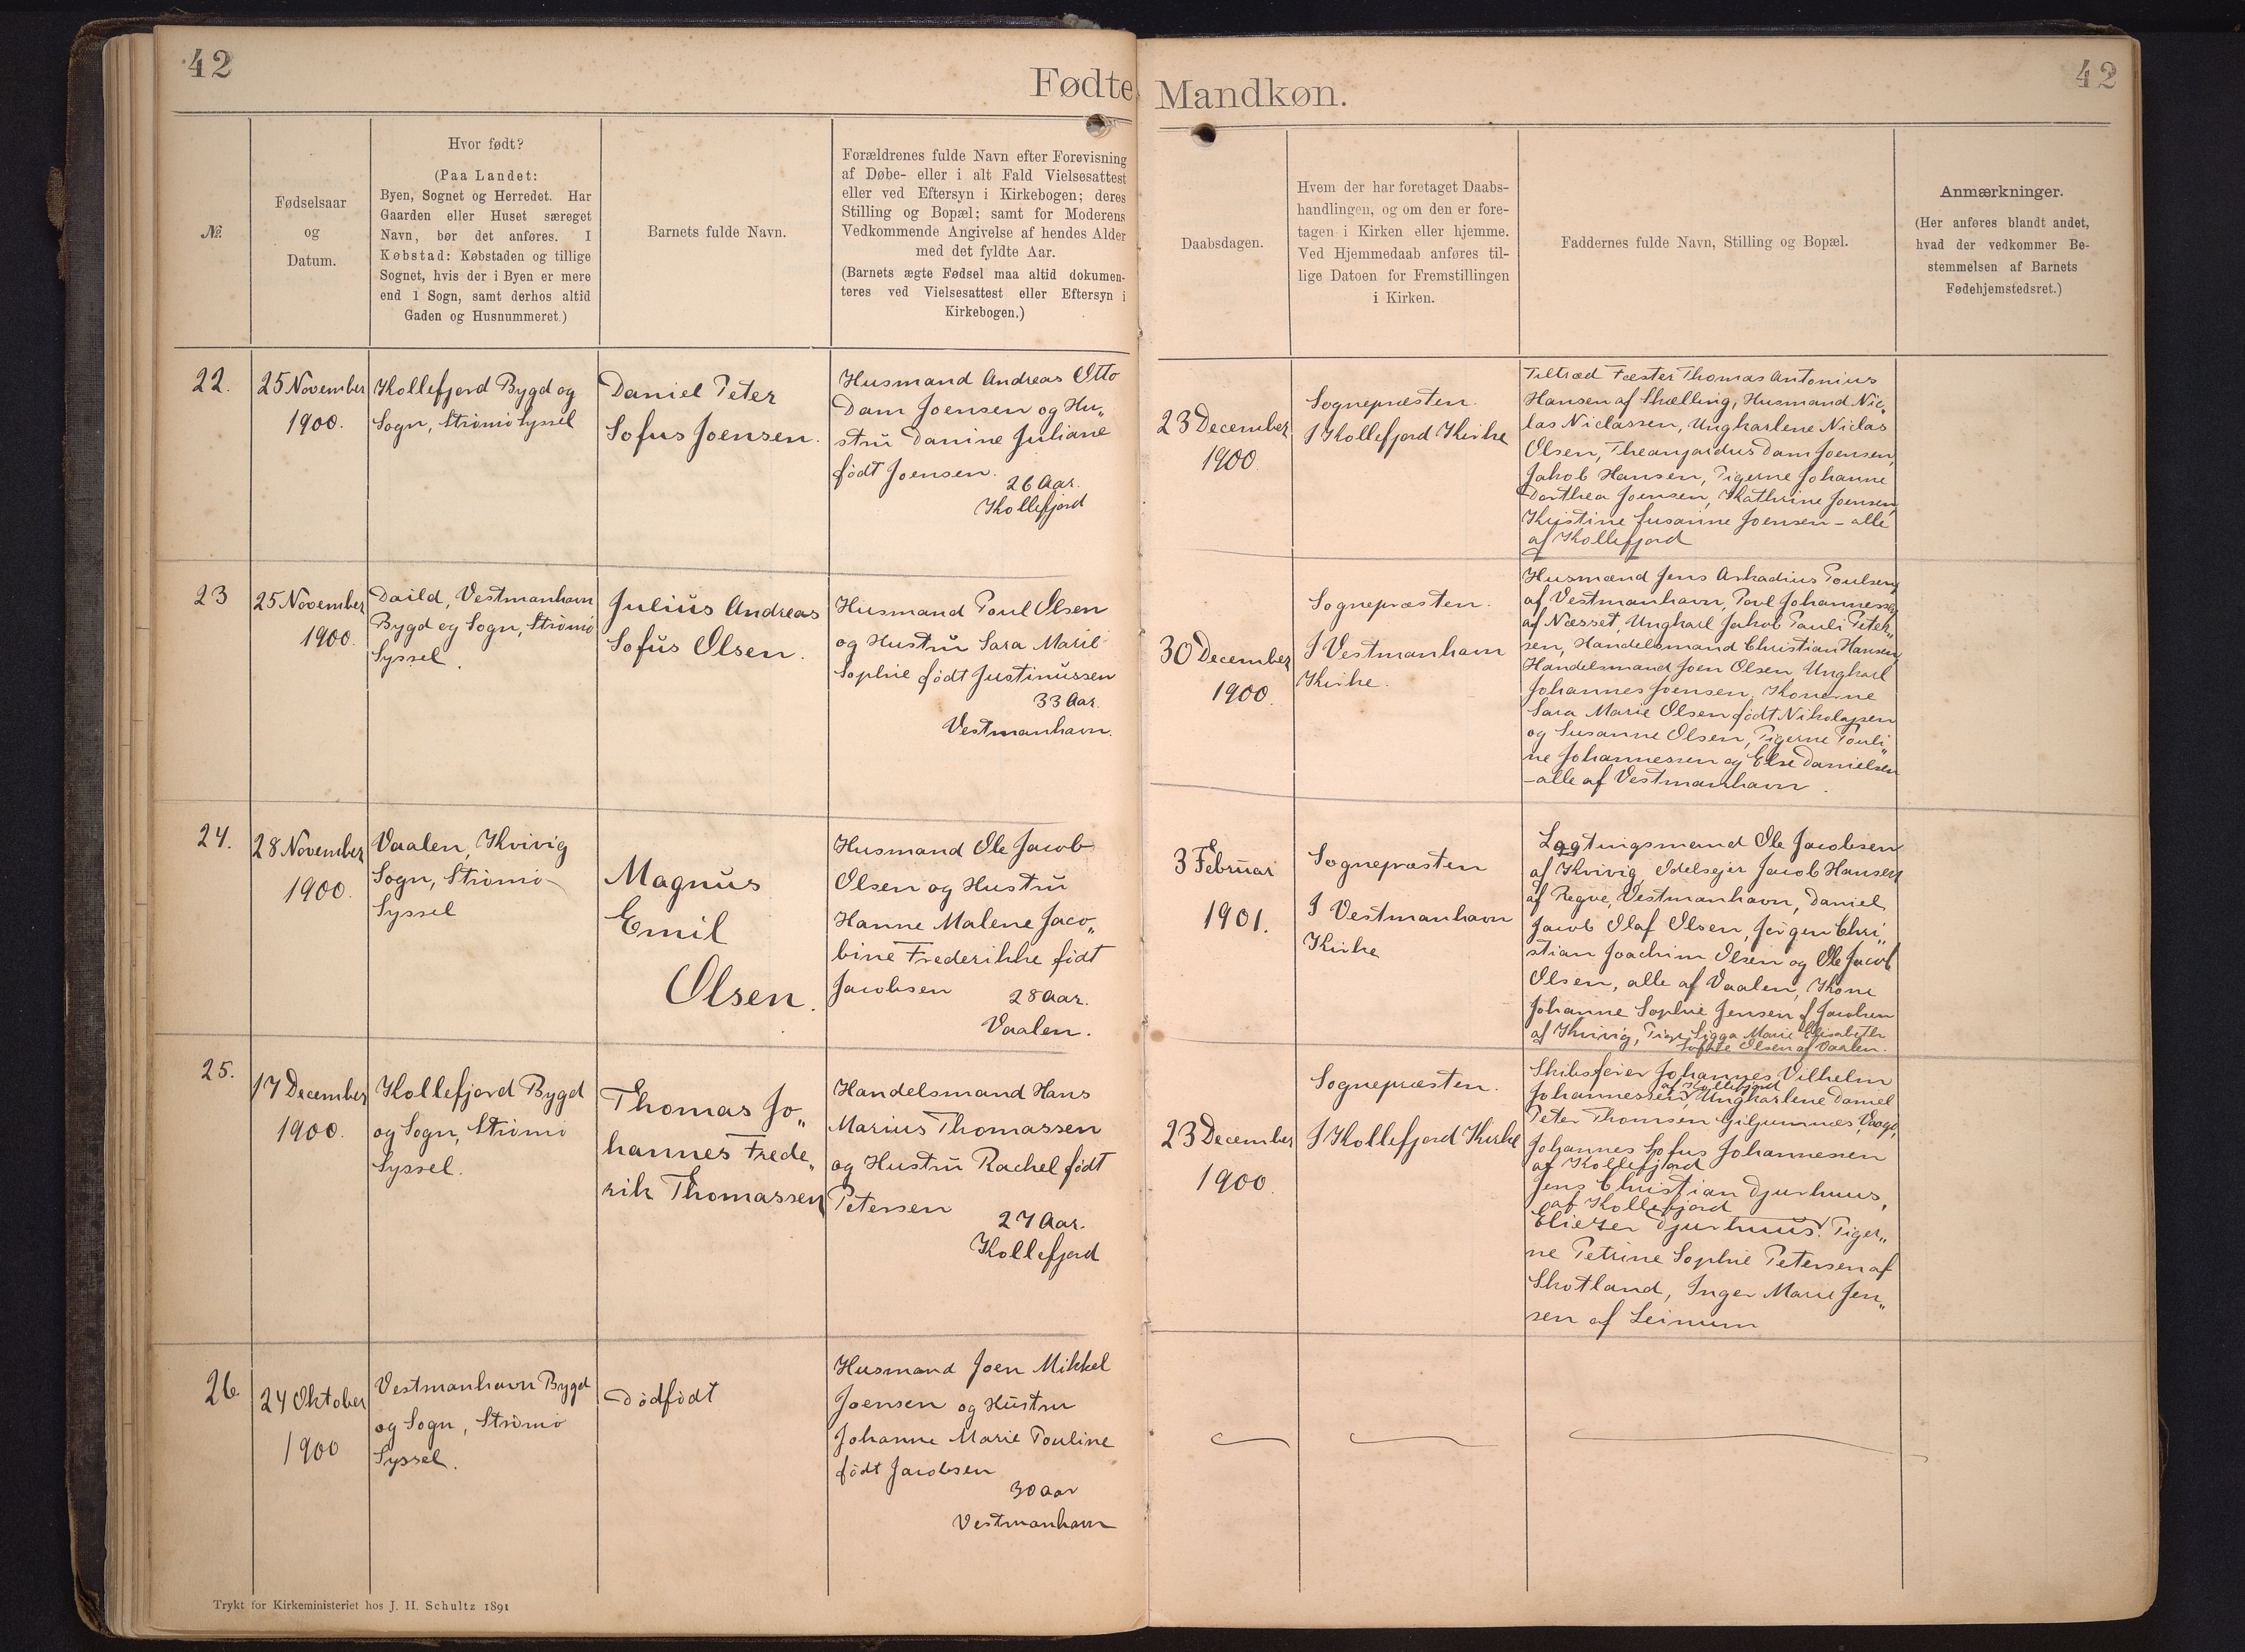 42
Fødte
№
Fødselsaar
og
Datum.
Hvor født?
(Paa Landet:
Byen, Sognet og Herredet. Har
Gaarden eller Huset særeget
Navn, bør det anføres. I
Købstad: Købstaden og tillige
Sognet, hvis der i Byen er mere
end 1 Sogn, samt derhos altid
Gaden og Husnummeret.)
Barnets fulde Navn.
Forældrenes fulde Navn efter Forevisning
af Døbe- eller i alt Fald Vielsesattest
eller ved Eftersyn i Kirkebogen; deres
Stilling og Bopæl; samt for Moderens
Vedkommende Angivelse af hendes Alder
med det fyldte Aar.
(Barnets ægte Fødsel maa altid dokumen-
teres ved Vielsesattest eller Eftersyn i
Kirkebogen.)
22.
25 November
1900.
Kollefjord Bygd og
Sogn, Strømø Syssel
Daniel Peter
Sofus Joensen.
Husmand Andreas Otto
Dam Joensen og Hu„
stru Danine Juliane
født Joensen.
26 Aar.
Kollefjord
23
25 November
1900.
Daild, Vestmanhavn
Bygd og Sogn, Strømø
Syssel.
Julius Andreas
Sofus Olsen.
Husmand Poul Olsen
og Hustru Sara Marie
Sophie født Justinussen
33 Aar.
Vestmanhavn.
24.
28 November
1900.
Vaalen, Kvivig
Sogn, Strømø
Syssel
Magnus
Emil
Olsen.
Husmand Ole Jacob
Olsen og Hustru
Hanne Malene Jaco„
bine Frederikke født
Jacobsen
28 Aar.
Vaalen.
25.
17 December
1900.
Kollefjord Bygd
og Sogn, Strømø
Syssel.
Thomas Jo„
hannes Frede„
rik Thomassen
Handelsmand Hans
Marius Thomassen
og Hustru Rachel født
Petersen
27 Aar.
Kollefjord
26
24 Oktober
1900
Vestmanhavn Bygd
og Sogn, Strømø
Syssel.
Dødfødt
Husmand Joen Mikkel
Joensen og Hustru
Johanne Marie Pouline
født Jacobsen
30 Aar
Vestmanhavn
Trykt for Kirkeministeriet hos J. H. Schultz 1891
42
Mandkøn.
Daabsdagen.
Hvem der har foretaget Daabs-
handlingen, og om den er fore-
tagen i Kirken eller hjemme.
Ved Hjemmedaab anføres til-
lige Datoen for Fremstillingen
i Kirken.
Faddernes fulde Navn, Stilling og Bopæl.
Anmærkninger.
(Her anføres blandt andet,
hvad der vedkommer Be-
stemmelsen af Barnets
Fødehjemstedsret.)
23 December
1900.
Sognepræsten.
I Kollefjord Kirke
Tiltræd Fæster Thomas Antonius
Hansen af Skælling, Husmand Nic„
las Niclassen, Ungkarlene Niclas
Olsen, Dam Joensen,
Jakob Hansen, Pigerne Johanne
Dorthea Joensen, Kathrine Joensen,
Kristine Susanne Joensen - alle
af Kollefjord
30 December
1900.
Sognepræsten.
I Vestmanhavn
Kirke.
Husmænd Jens Arkadius Poulsen
af Vestmanhavn, Poul Johannessen
af Næsset, Ungkarl Jakob Pauli Peter„
sen, Handelsmand Christian Hansen,
Handelsmand Joen Olsen, Ungkarl
Johannes Joensen, Konerne
Sara Marie Olsen født Nikolajsen
og Susanne Olsen, Pigerne Pouli„
ne Johannessen og Else Danielsen
- alle af Vestmanhavn.
3 Februar
1901.
Sognepræsten
I Vestmanhavn
Kirke
Lagtingsmand Ole Jacobsen
af Kvivig, Odelsejer Jacob Hansen
af Vestmanhavn, Daniel
Jacob Olaf Olsen, Jørgen Chri„
stian Joachim Olsen og Ole Jacob
Olsen, alle af Vaalen, Kone
Johanne Sophie Jensen f Jacobsen
af Kvivig, Pige Sigga Marie Elisabeth
Sofie Olsen af Vaalen.
23 December
1900.
Sognepræsten.
I Kollefjord Kirke
Skibsfører Johannes Vilhelm
af Kollefjord
Johannessen, Ungkarlene Daniel
Peter Thomsen Giljumnæs, Vaagø,
Johannes Sofus Johannessen
af Kollefjord
Jens Christian Djurhuus,
af Kollefjord
Eliezer Djurhuus. Piger„
ne Petrine Sophie Petersen af
Skotland, Inger Marie Jen„
sen af Leinum